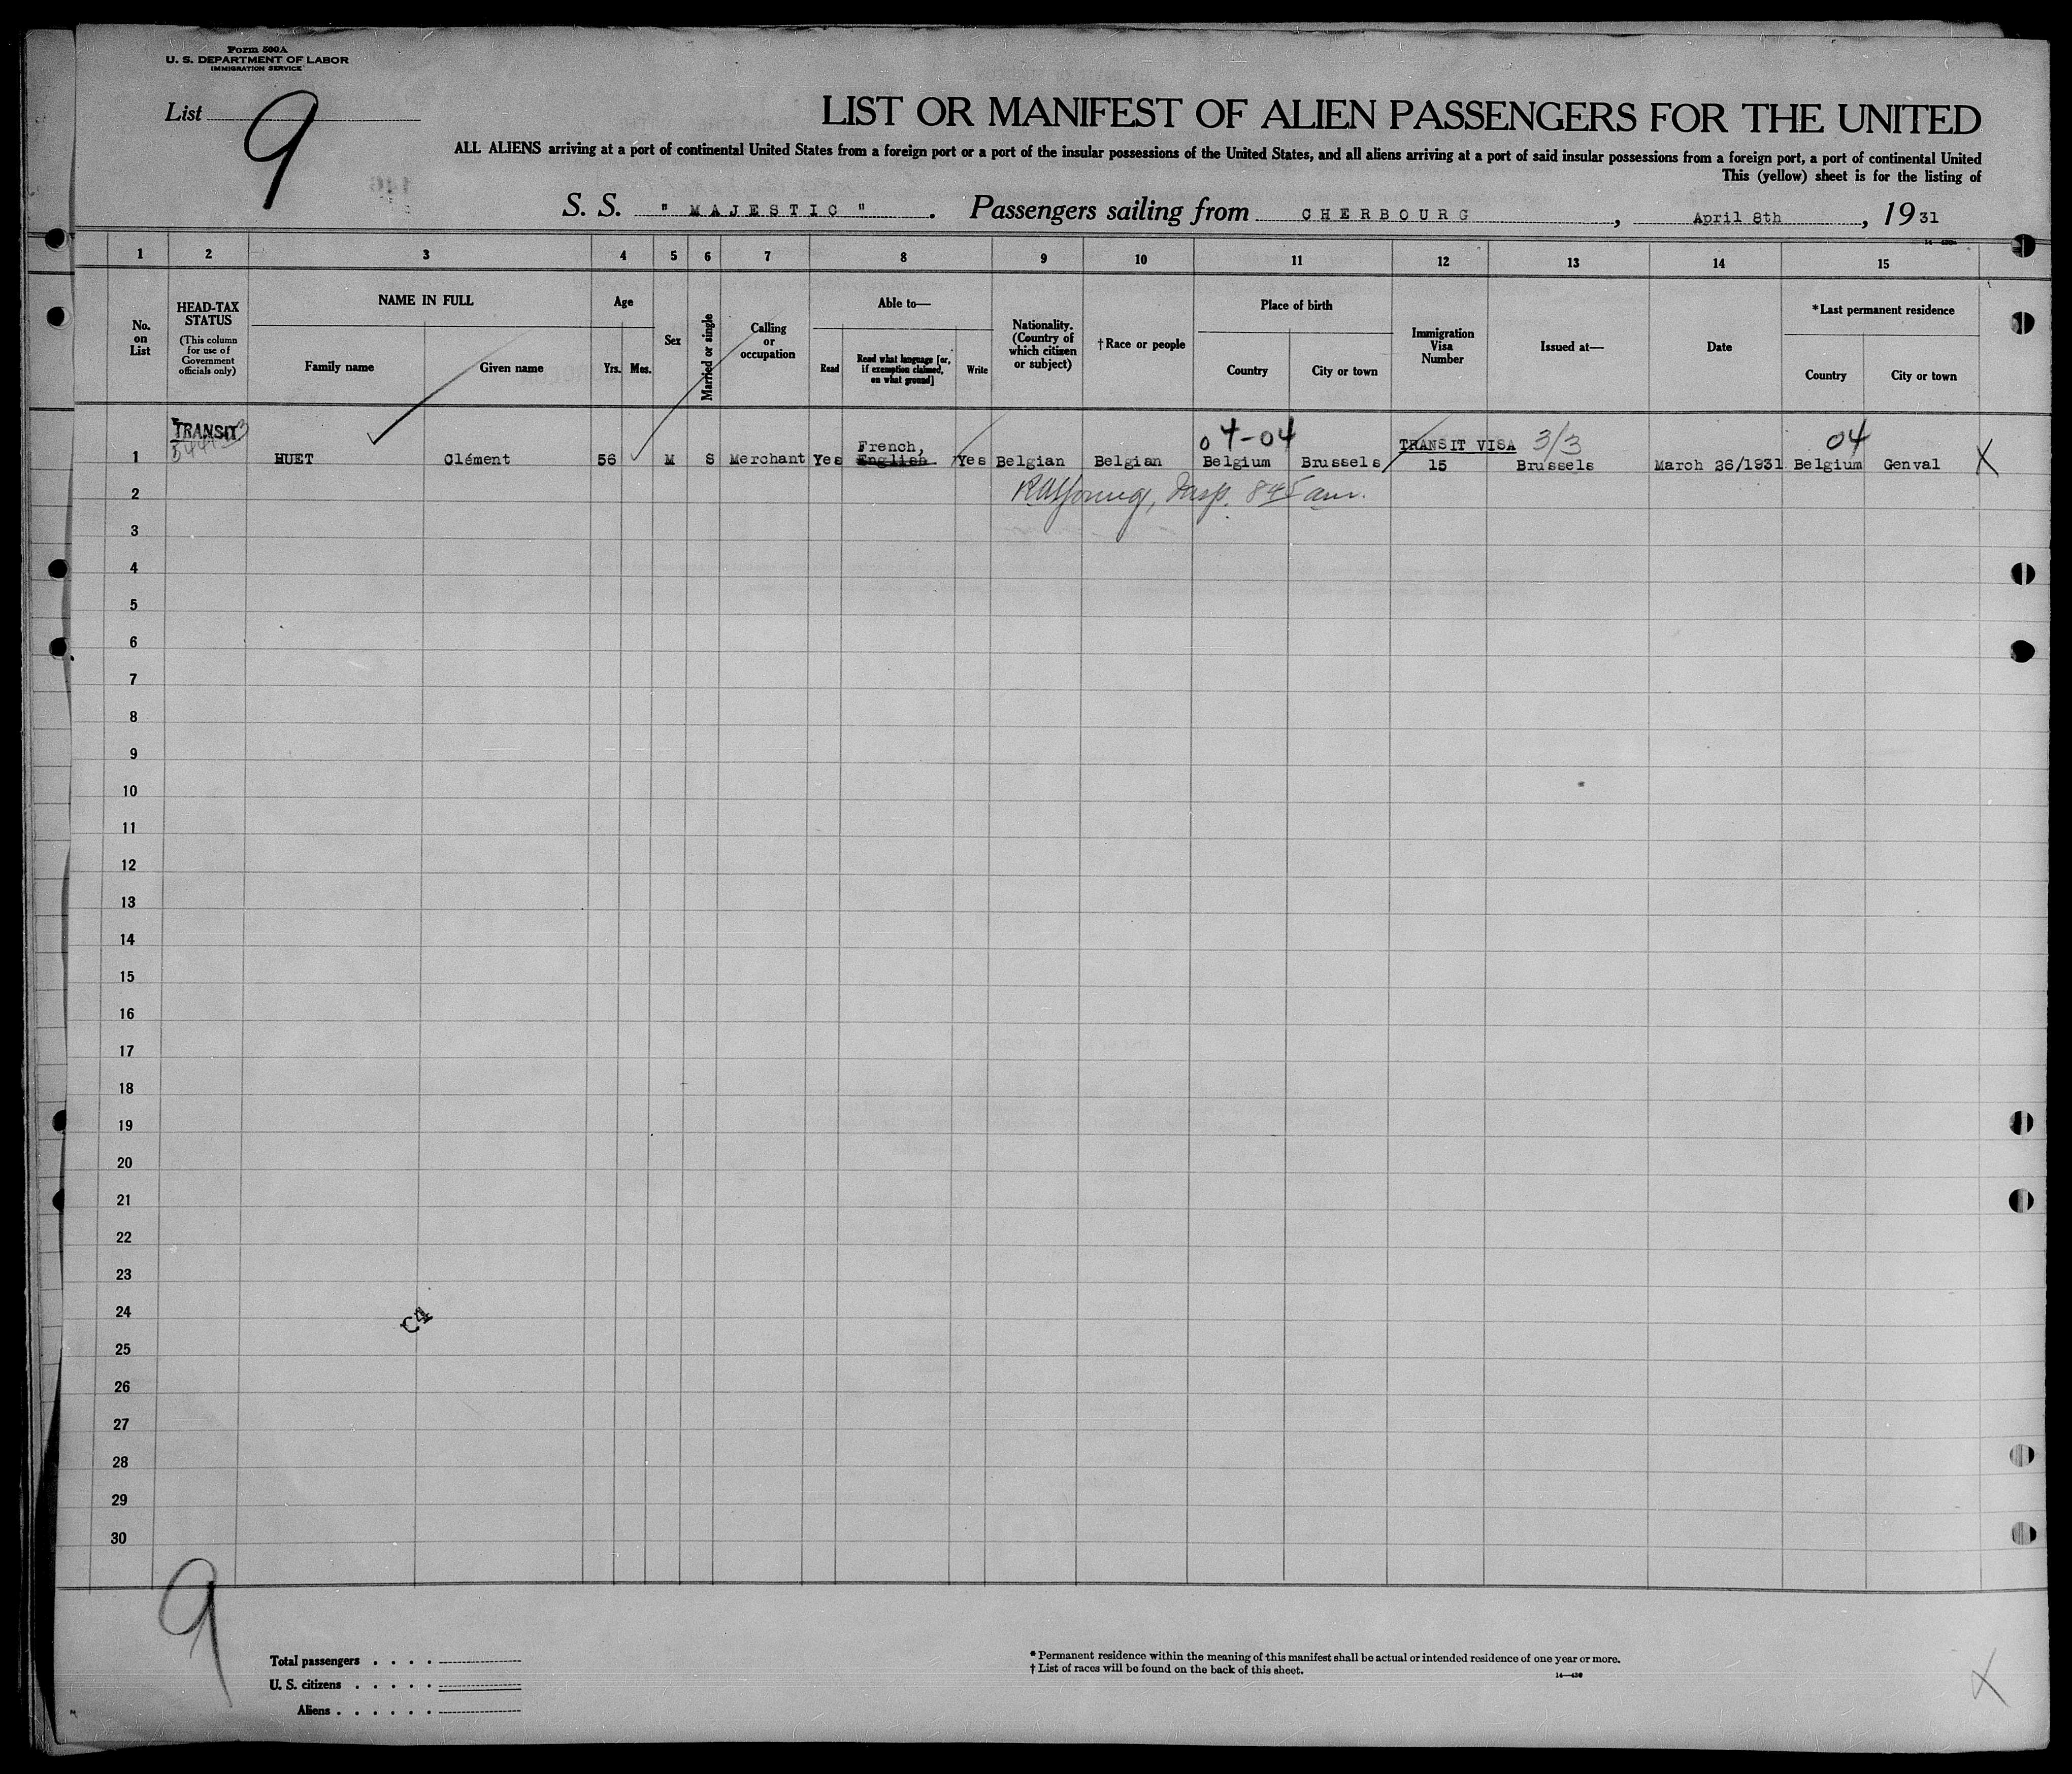 Form 500A
U. S. DEPARTMENT OF LABOR
IMMIGRATION SERVICE
List 9
LIST OR MANIFEST OF ALIEN PASSENGERS FOR THE UNITED
ALL ALIENS arriving at a port of continental United States from a foreign port or a port of the insular possessions of the United States, and all aliens arriving at a port of said insular possessions from a foreign port, a port of continental United
This (yellow) sheet is for the listing of
S. S. " MAJESTIC ". Passengers sailing from CHERBOURG, April 8th, 1931
1 2 3 4 5 6 7 8 9 10 11 12 13 14 15
No. on List
HEAD-TAX STATUS
(This column for use of Government officials only)
NAME IN FULL
Family name Given name
Age
Yrs. Mos.
Sex
Married or single
Calling or occupation
Able to—
Read
Read what language [or, if exemption claimed, on what ground]
Write
Nationality. (Country of which citizen or subject)
†Race or people
Place of birth
Country City or town
Immigration Visa Number
Issued at—
Date
*Last permanent residence
Country City or town
TRANSIT 04-04 TRANSIT VISA 3/3 04
French,
1 HUET Clément 56 M S Merchant Yes English Yes Belgian Belgian Belgium Brussels 15 Brussels March 26/1931 Belgium Genval X
2 Insp. 845 am.
3
4
5
6
7
8
9
10
11
12
13
14
15
16
17
18
19
20
21
22
23
24
C4
25
26
27
28
29
30
9
Total passengers
U. S. citizens
Aliens
* Permanent residence within the meaning of this manifest shall be actual or intended residence of one year or more.
† List of races will be found on the back of this sheet.
14—430
X